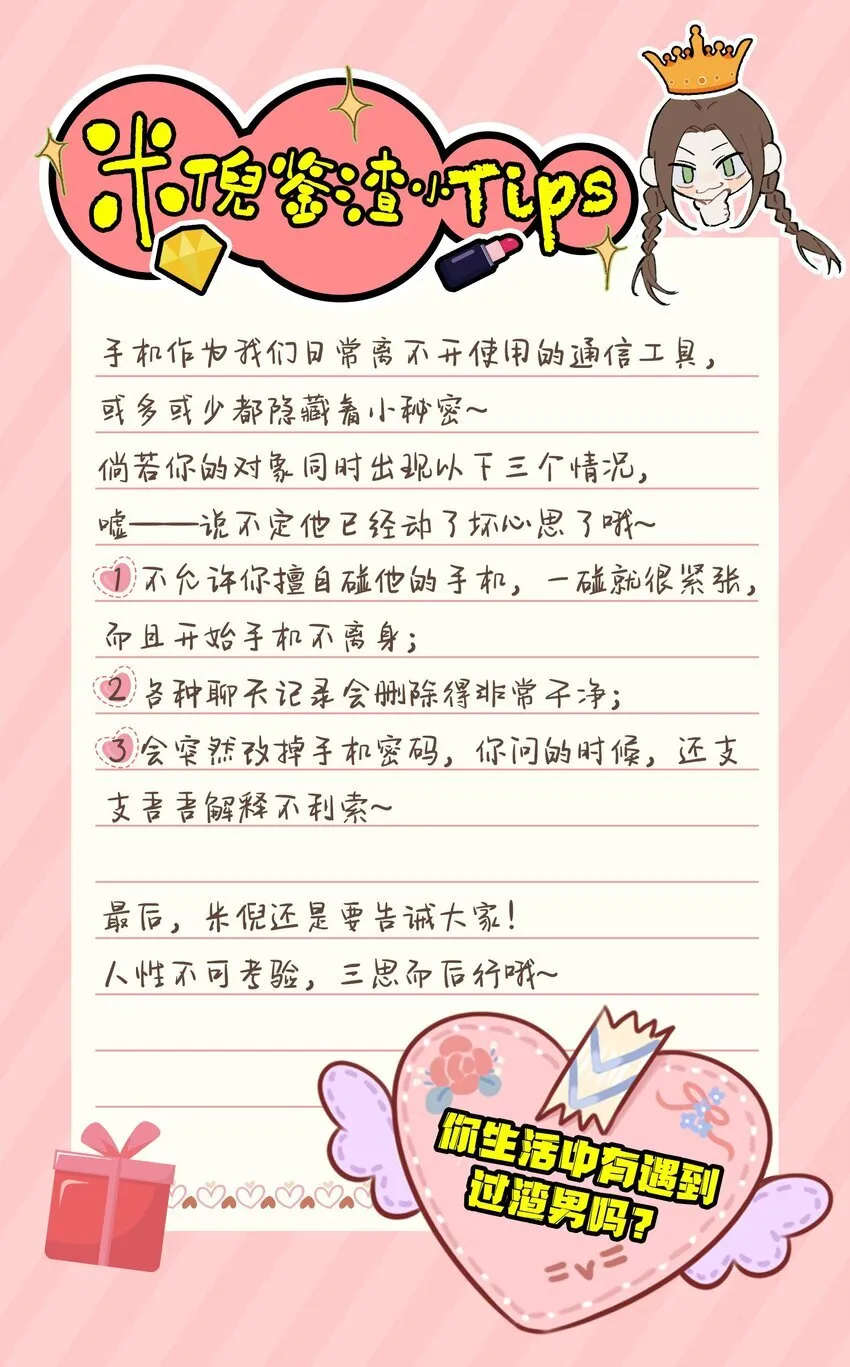 米倪鉴渣小Tips
手机作为我们日常离不开使用的通信工具，
或多或少都隐藏着小秘密~
倘若你的对象同时出现以下三个情况，
嘘——说不定他已经动了坏心思了哦~
1 不允许你擅自碰他的手机，一碰就很紧张，
而且开始手机不离身；
2 各种聊天记录会删除得非常干净；
3 会突然改掉手机密码，你问的时候，还支
支吾吾解释不利索~
最后，米倪还是要告诫大家！
人性不可考验，三思而后行哦~
你生活中有遇到
过渣男吗？